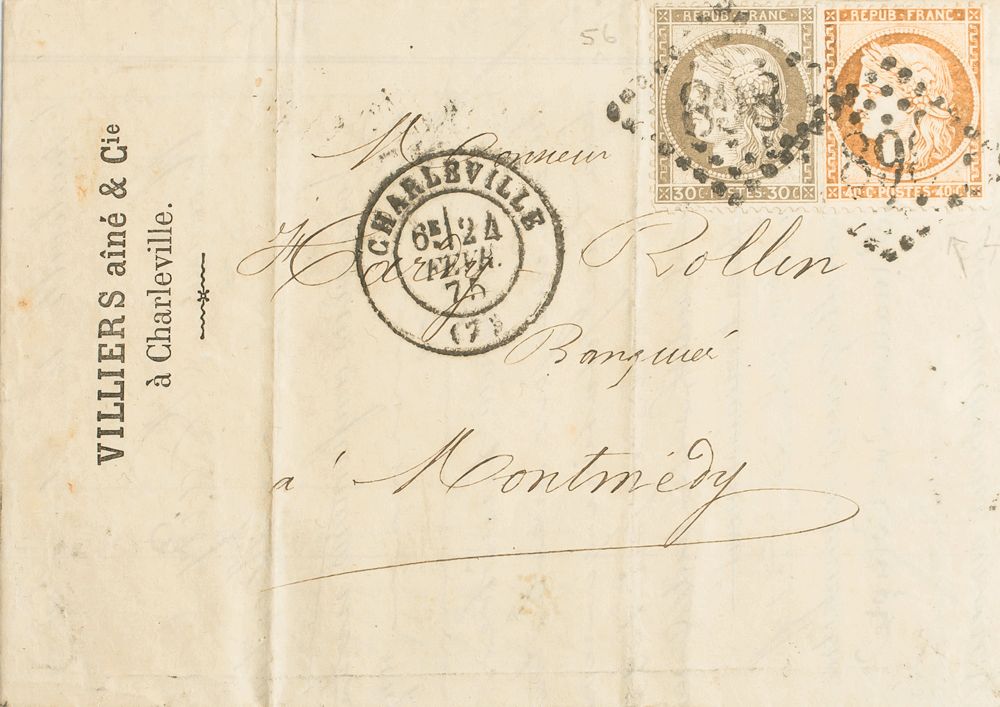 56
REPUB · FRANC
30 C · POSTES · 30 C
REPUB · FRANC
POSTES · 40 C
VILLIERS aîné & Cie
à Charleville.
CHARLEVILLE
6E 24
FÉVR.
75
(7)
Monsieur
Rollin
Banquier
à Montmédy
4